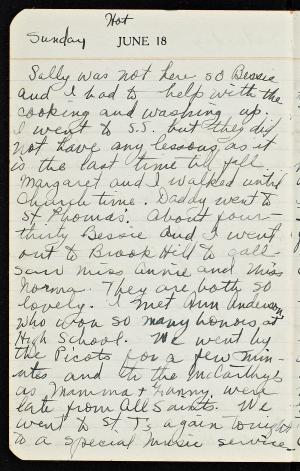 Hot
Sunday JUNE 18
Sally was not here so Bessie
and I had to help with the
cooking and washing up.
I went to S.S. but they did
not have any lessons as it
is the last time till fall
Margaret and I walked until
Church time. Daddy went to
St. Thomas. About four-
thirty Bessie and I went
out to Brook Hill to call
saw Miss Annie and Miss
Norma. They are both so
lovely. I met Ann Anderson
who won so many honors at
High School. We went by
the Picots for a few min-
utes and th the McCarthys
as Mamma & Nanny were
late from All Saints. We
went to St. T's again tonight
to a special music service.